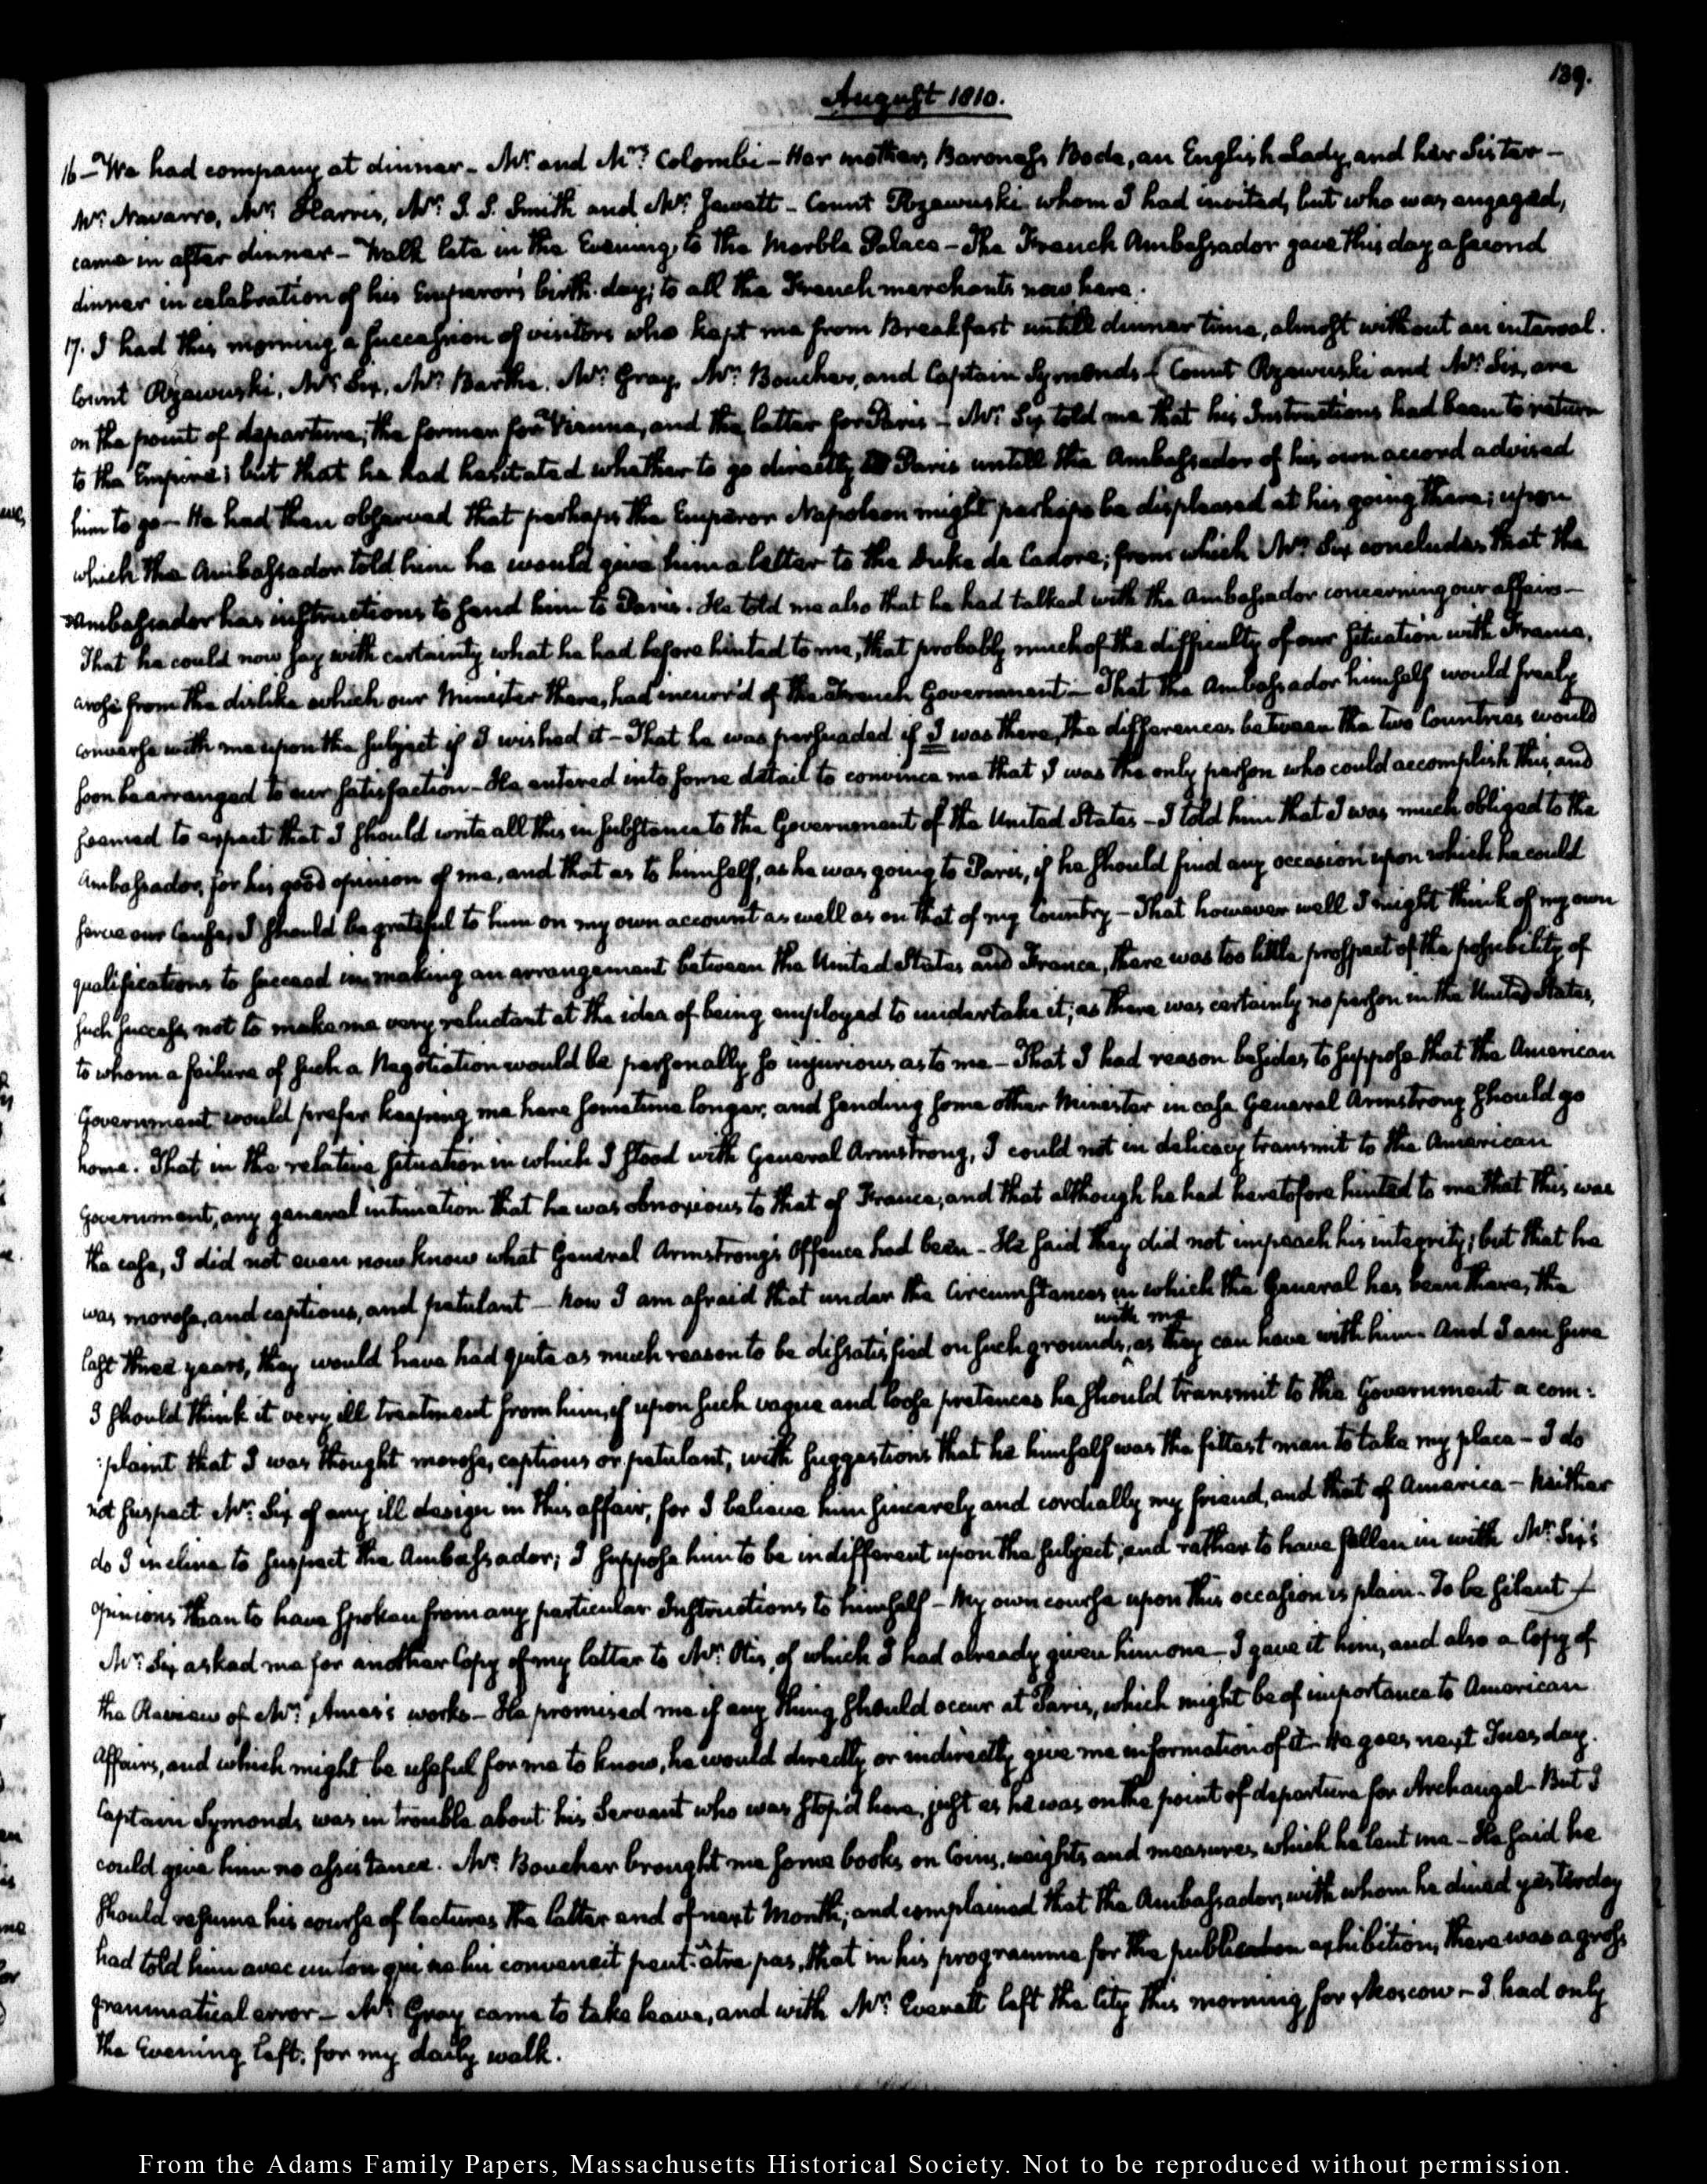 139.
August 1810.
16 – We had company at dinner – Mr. and Mrs. Colombi – Her mother, Baroness Bode, an English Lady, and her Sister –
Mr. Navarro, Mr. Harris, Mr. J. S. Smith and Mr. Jewett – Count Rzewuski whom I had invited, but who was engaged,
came in after dinner – Walk late in the Evening, to the Marble Palace – The French Ambassador gave this day a second
dinner in celebration of his Emperor's birth-day; to all the French merchants now here.
17. I had this morning a succession of visitors who kept me from Breakfast untill dinner time, almost without an interval.
Count Rzewuski, Mr. Six, Mr. Barthe, Mr. Gray, Mr. Boucher, and Captain Symonds – (Count Rzewuski and Mr. Six, are
on the point of departure; the former for Vienna, and the latter for Paris – Mr. Six told me that his Instructions had been to return
to the Empire; but that he had hesitated whether to go directly to Paris untill the Ambassador of his own accord advised
him to go – He had then observed that perhaps the Emperor Napoleon might perhaps be displeased at his going there; upon
which the Ambassador told him he would give him a letter to the Duke de Cadore; from which Mr. Six concludes that the
Ambassador has instructions to send him to Paris. He told me also that he had talked with the Ambassador concerning our affairs –
That he could now say with certainty what he had before hinted to me, that probably much of the difficulty of our situation with France,
arose from the dislike which our Minister there, had incurr'd of the French Government – That the Ambassador himself would freely
converse with me upon the subject if I wished it – That he was persuaded if I was there, the differences between the two Countries would
soon be arranged to our satisfaction – He entered into some detail to convince me that I was the only person who could accomplish this, and
seemed to expect that I should write all this in substance to the Government of the United States – I told him that I was much obliged to the
Ambassador, for his good opinion of me, and that as to himself, as he was going to Paris, if he should find any occasion upon which he could
serve our Cause, I should be grateful to him on my own account as well as on that of my Country – That however well I might think of my own
qualifications to succeed in making an arrangement between the United States and France, there was too little prospect of the possibility of
such success, not to make me very reluctant at the idea of being employed to undertake it; as there was certainly no person in the United States,
to whom a failure of such a Negotiation would be personally so injurious as to me – That I had reason besides to suppose that the American
Government would prefer keeping me here sometime longer, and sending some other Minister in case General Armstrong should go
home. That in the relative situation in which I stood with General Armstrong, I could not in delicacy transmit to the American
Government, any general intimation that he was obnoxious to that of France; and that although he had heretofore hinted to me that this was
the case, I did not even now know what General Armstrong's Offence had been – He said they did not impeach his integrity; but that he
was morose, and captious, and petulant – Now I am afraid that under the Circumstances in which the General has been there, the
with me
last three years, they would have had quite as much reason to be dissatisfied on such grounds, as they can have with him. And I am sure
I should think it very ill treatment from him, if upon such vague and loose pretences he should transmit to the Government a com:
:plaint that I was thought morose, captious or petulant, with suggestions that he himself was the fittest man to take my place – I do
not suspect Mr. Six of any ill design in this affair, for I believe him sincerely and cordially my friend, and that of America – Neither
do I incline to suspect the Ambassador; I suppose him to be indifferent upon the subject, and rather to have fallen in with Mr. Six's
opinions than to have spoken from any particular Instructions to himself – My own course upon this occasion is plain. To be silent –)
Mr. Six asked me for another Copy of my letter to Mr. Otis, of which I had already given him one – I gave it him, and also a Copy of
the Review of Mr. Ames's works – He promised me if any thing should occur at Paris, which might be of importance to American
Affairs, and which might be useful for me to know, he would directly or indirectly give me information of it – He goes next Tuesday.
Captain Symonds was in trouble about his Servant who was stop'd here, just as he was on the point of departure for Archangel – But I
could give him no assistance. Mr. Boucher brought me some books on Coins, weights and measures which he lent me – He said he
should resume his course of lectures the latter end of next Month; and complained that the Ambassador, with whom he dined yesterday
had told him avec un ton qui ne lui convenait peut-être pas, that in his programme for the publication exhibition, there was a gross
grammatical error – Mr. Gray came to take leave, and with Mr. Everett left the City this morning for Moscow – I had only
the Evening left, for my daily walk.
From the Adams Family Papers, Massachusetts Historical Society. Not to be reproduced without permission.